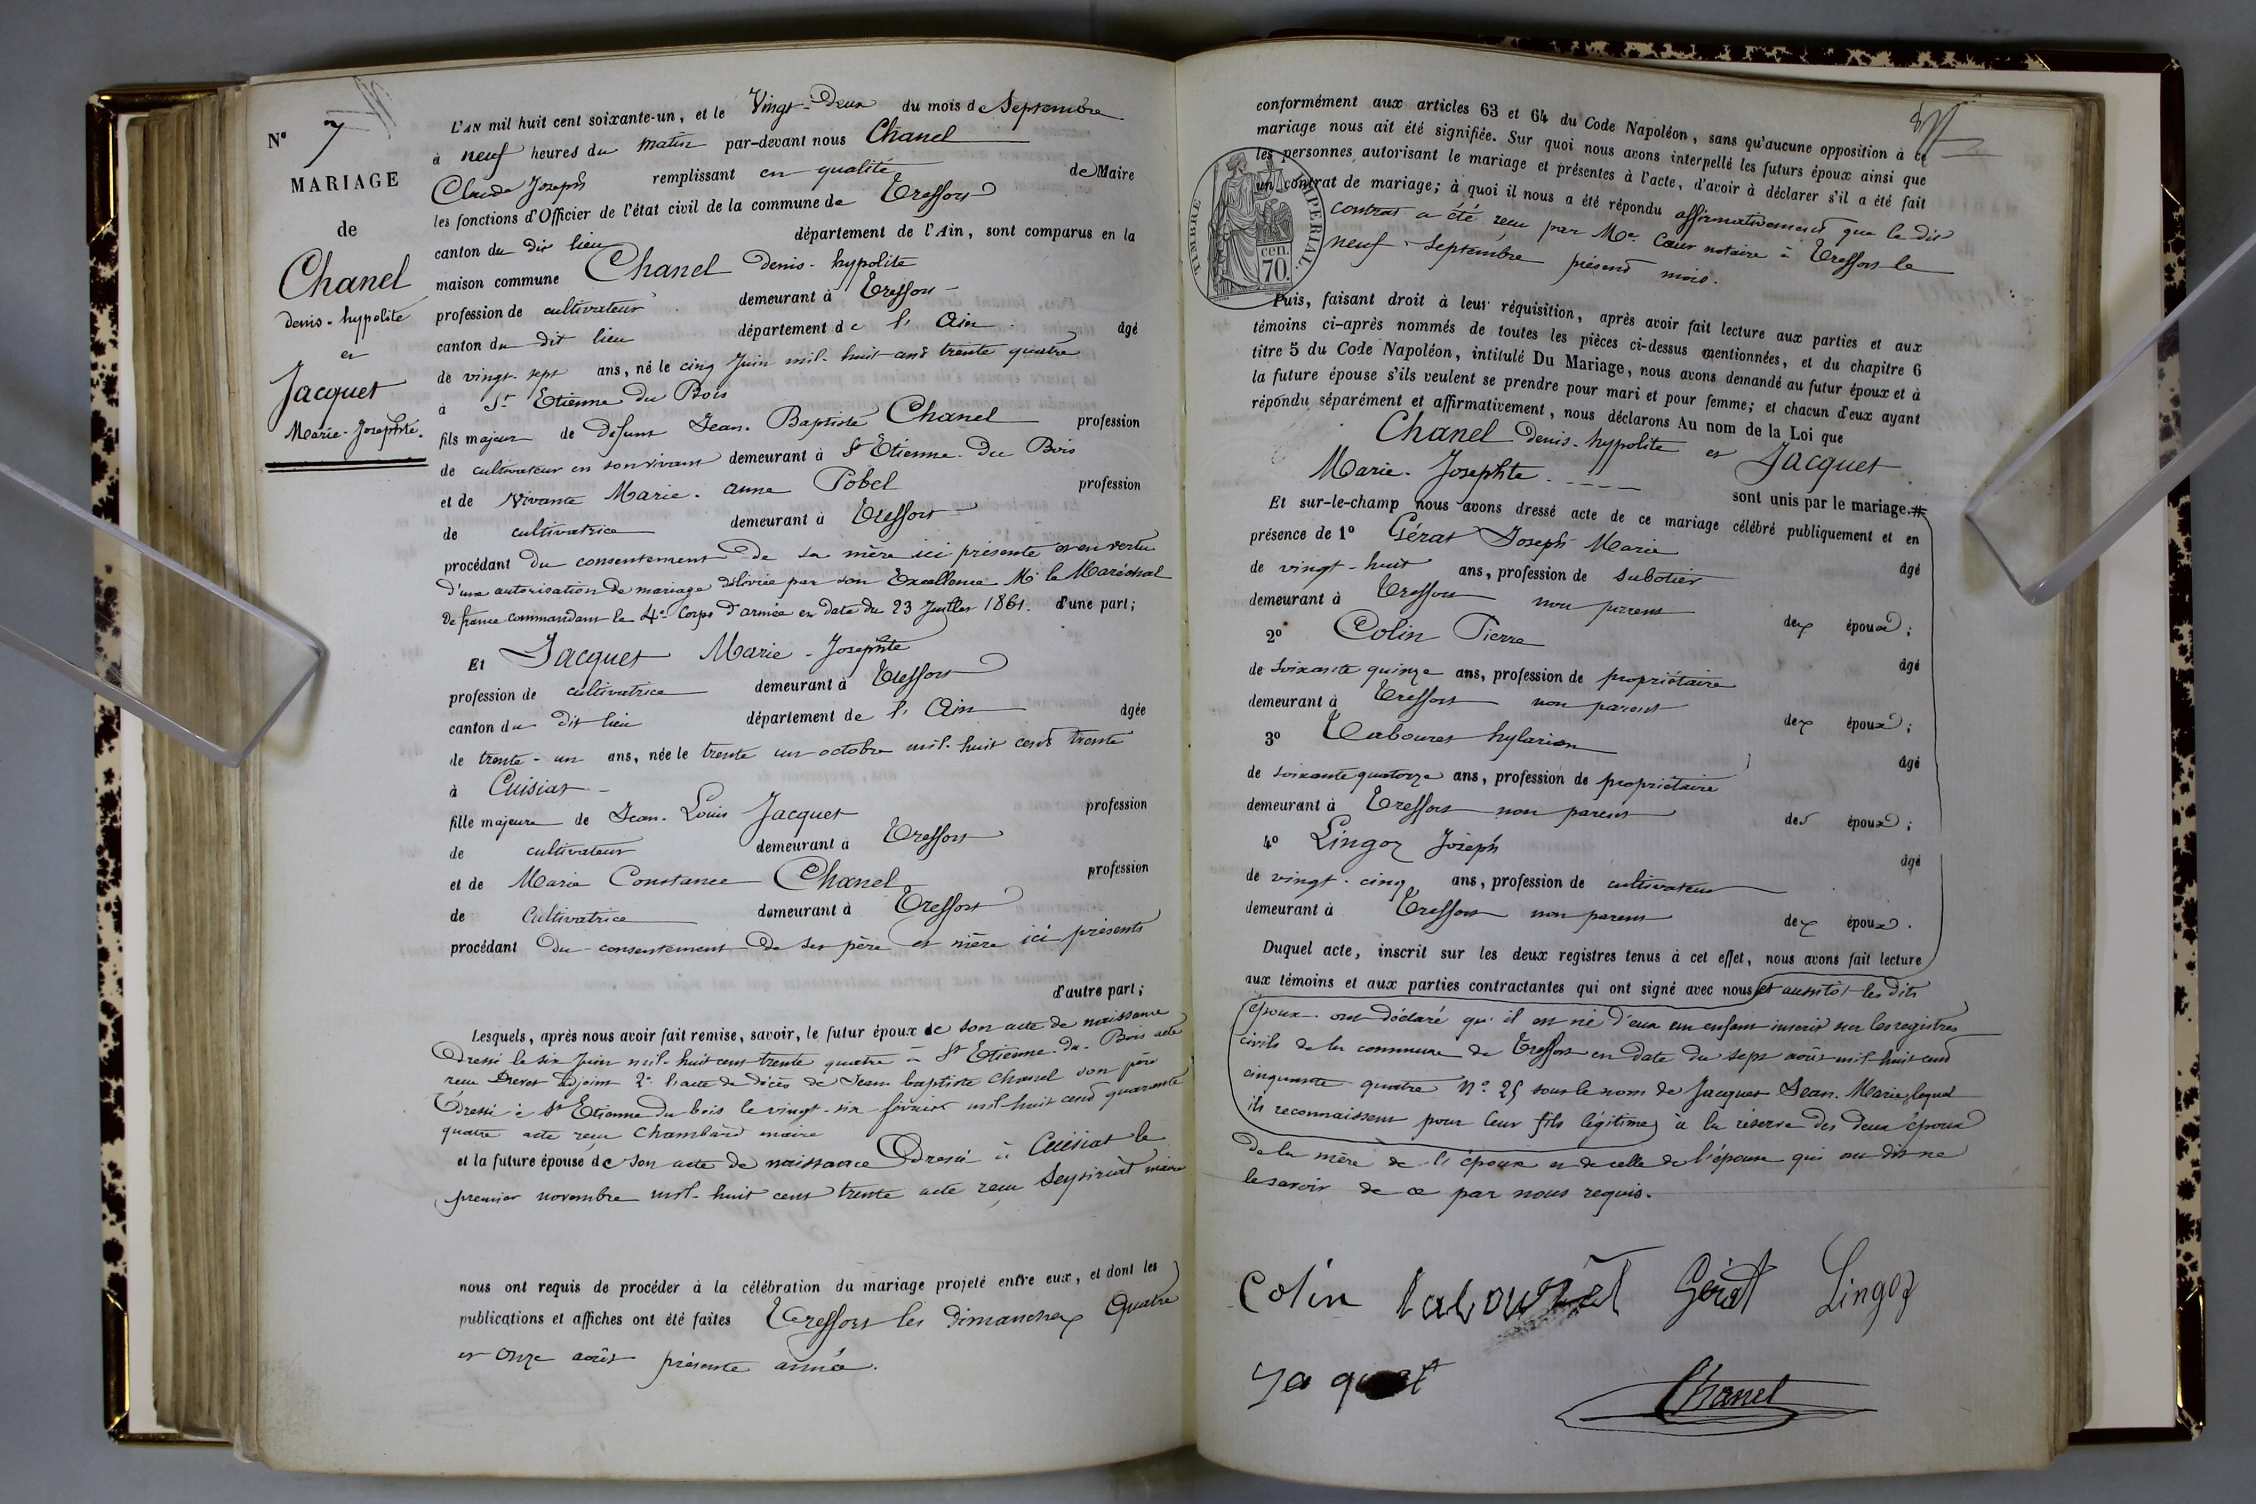 N° 7
MARIAGE
de
Chanel
denis-hypolite
et
Jacquet
Marie-Josephte.
L'AN mil huit cent soixante-un, et le Vingt-Deux du mois de Septembre
à neuf heures du matin par-devant nous Chanel
Claude Joseph remplissant en qualité de Maire
les fonctions d'Officier de l'état civil de la commune de Treffort
canton du dit lieu département de l'Ain, sont comparus en la
maison commune Chanel denis-hypolite
profession de cultivateur demeurant à Treffort
canton du dit lieu département de l'Ain âgé
de vingt-sept ans, né le cinq Juin mil-huit cent trente quatre
à St Etienne du Bois
fils majeur de défunt Jean-Baptiste Chanel profession
de cultivateur en son vivant demeurant à St Etienne-du Bois
et de vivante Marie-anne Pobel profession
de cultivatrice demeurant à Treffort
procédant du consentement de sa mère ici présente et en vertu
d'une autorisation de mariage délivrée par son Excellence Mr le Maréchal
de france commandant le 4e Corps d'armée en date du 23 Juillet 1861. d'une part;
Et Jacquet Marie-Josephte
profession de cultivatrice demeurant à Treffort
canton du dit lieu département de l'Ain âgée
de trente-un ans, née le trente un octobre mil-huit cent trente
à Cuisiat
fille majeure de Jean-Louis Jacquet profession
de cultivateur demeurant à Treffort
et de Marie Constance Chanel profession
de cultivatrice demeurant à Treffort
procédant du consentement de ses père et mère ici présents
d'autre part;
Lesquels, après nous avoir fait remise, savoir, le futur époux de son acte de naissance
Dressé le six Juin mil-huit cent trente quatre à St Etienne-du-Bois acte
reçu Drevet adjoint 2° l'acte de décès de Jean baptiste Chanel son père
Dressé à St Etienne du bois le vingt-six février mil-huit cent quarante
quatre acte reçu Chambard maire
et la future épouse de son acte de naissance Dressé à Cuisiat le
premier novembre mil-huit cent trente acte reçu Seysiriat maire
nous ont requis de procéder à la célébration du mariage projeté entre eux, et dont les
publications et affiches ont été faites Treffort les dimanches Quatre
et onze août présente année.
conformément aux articles 63 et 64 du Code Napoléon, sans qu'aucune opposition à ce
mariage nous ait été signifiée. Sur quoi nous avons interpellé les futurs époux ainsi que
les personnes autorisant le mariage et présentes à l'acte, d'avoir à déclarer s'il a été fait
un contrat de mariage; à quoi il nous a été répondu affirmativement que le dit
contrat a été reçu par Me Cœur notaire à Treffort le
neuf Septembre présent mois.
TIMBRE IMPÉRIAL.
70
cen.
Puis, faisant droit à leur réquisition, après avoir fait lecture aux parties et aux
témoins ci-après nommés de toutes les pièces ci-dessus mentionnées, et du chapitre 6
titre 5 du Code Napoléon, intitulé Du Mariage, nous avons demandé au futur époux et à
la future épouse s'ils veulent se prendre pour mari et pour femme; et chacun d'eux ayant
répondu séparément et affirmativement, nous déclarons Au nom de la Loi que
Chanel denis-hypolite et Jacquet
Marie-Josephte
sont unis par le mariage.#
Et sur-le-champ nous avons dressé acte de ce mariage célébré publiquement et en
présence de 1° Gérat Joseph Marie âgé
de vingt-huit ans, profession de sabotier
demeurant à Treffort non parent des époux;
2° Colin Pierre âgé
de soixante quinze ans, profession de propriétaire
demeurant à Treffort non parent des époux;
3° Tabouret hylarion âgé
de soixante quatorze ans, profession de propriétaire
demeurant à Treffort non parent des époux;
4° Lingoz Joseph âgé
de vingt-cinq ans, profession de cultivateur
demeurant à Treffort non parent des époux.
Duquel acte, inscrit sur les deux registres tenus à cet effet, nous avons fait lecture
aux témoins et aux parties contractantes qui ont signé avec nous et aussitôt les dits
époux ont déclaré qu'il est né d'eux un enfant inscrit sur les registres
civils de la commune de Treffort en date du sept août mil-huit cent
cinquante quatre N° 25 sous le nom de Jacquet Jean-Marie, lequel
ils reconnaissent pour leur fils légitime, à la réserve des deux époux
de la mère de l'époux et de celle de l'épouse qui ont dit ne
le savoir de ce par nous requis.
Colin tabouret Gérat Lingoz
Chanel